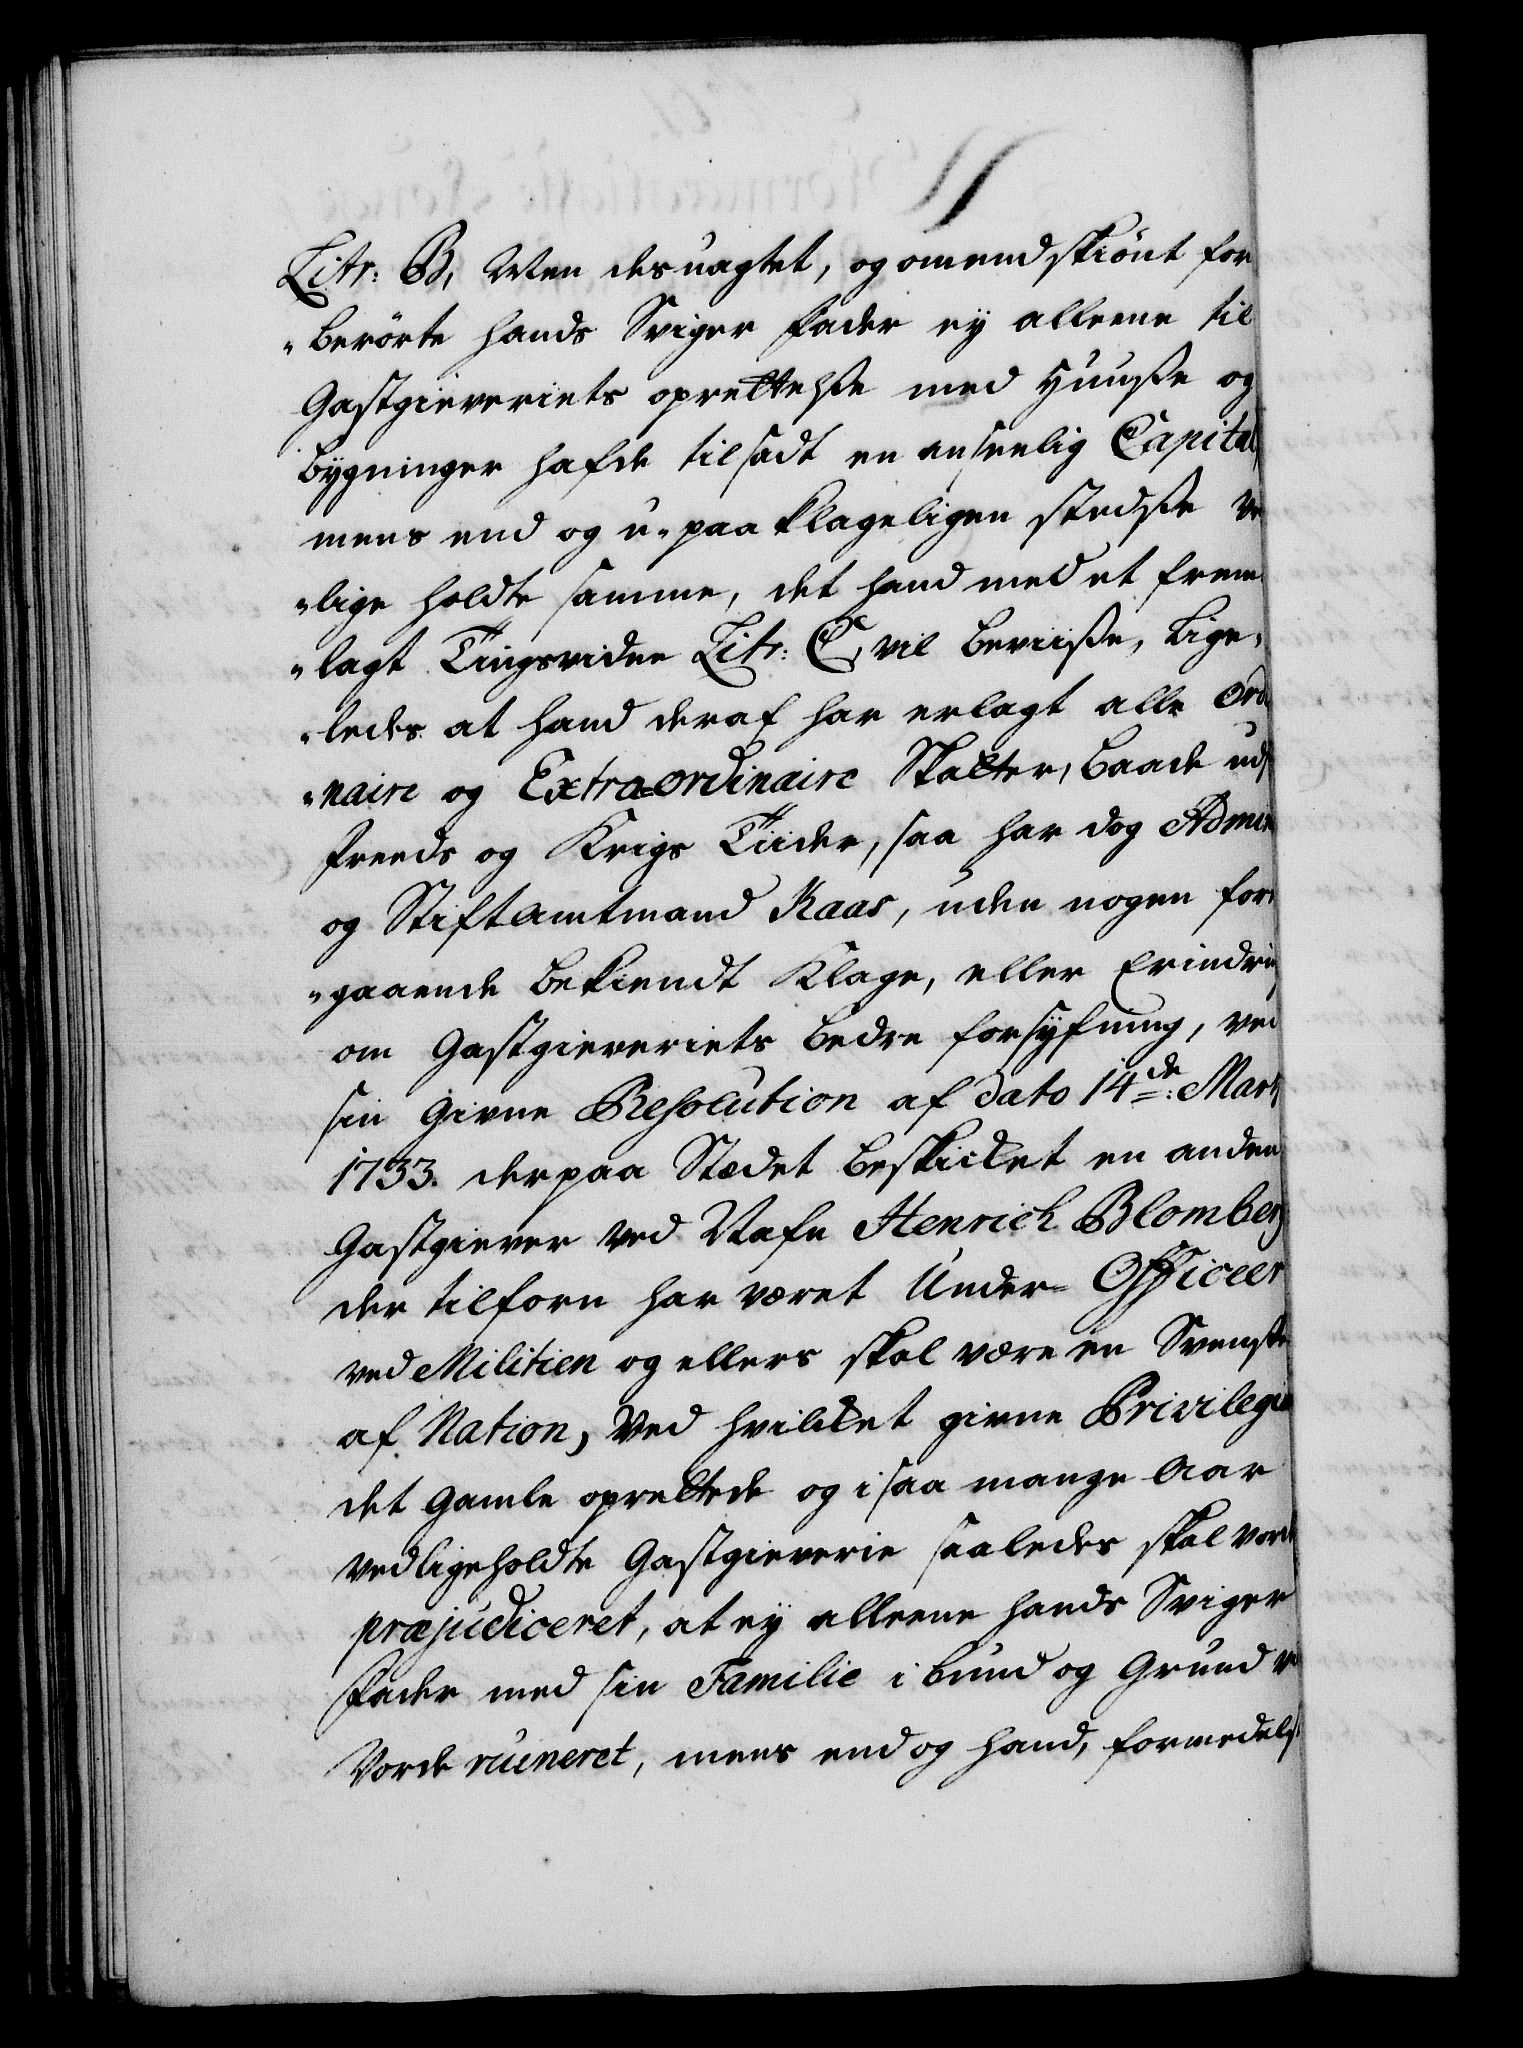 Litr: B, Men desuagtet, og omendskiönt for
"berörte hands Sviger fader ey alleene til
Gastgieveriets oprettelsse med Huusse og
bygninger hafde tilsadt en anseelig Capital,
mens end og u-paaklageligen stedsse ve
"lige holdte samme, det hand med et frem
"lagt Tingsvidne Litr: C, vil beviisse, lige,
"ledes at hand deraf har erlagt alle ord
"naire og Extraordinaire Skatter, baade udj
freeds og Krigs Tiider, saa har dog Admir
og Stiftamtmand Kaas, uden nogen for
"gaaende bekiendt Klage, eller Erindrin
om Gastgieveriets bedre forsyfning, ved
sin givne Resolution af dato 14de: Marty
1733. derpaa Stædet beskicket en anden
Gastgiever ved Nafn Henrich Blomberg
der tilforn har været Under-Officeer
ved Militien og ellers skal være en Svenske
af Nation, Ved hvilcket givne Privilegie
det gamle oprettede og i saa mange Aar
vedligeholdte Gastgieverie saaledes skal vorde
præjudiceret, at ey alleene hands Sviger
fader med sin Familie i bund og Grund
Vorde ruineret, mens end og hand, formedelst